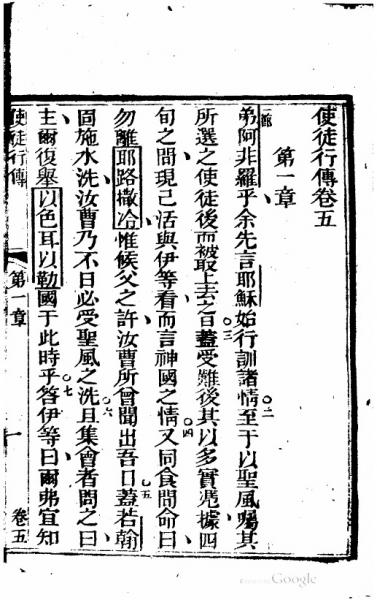 使徒行傳卷五
第一章
弟阿非羅乎余先言耶穌始行訓諸情至于以聖風囑其
所選之使徒後而被取上去之日蓋受難後其以多實憑據四
旬之間現己活與伊等看而言神國之情又同食間命曰
勿離耶路撒冷惟候父之許汝曹所曾聞出吾口蓋若翰
固施水洗汝曹乃不日必受聖風之洗且集會者問之曰
主爾復舉以色耳以勒國于此時乎答伊等曰爾弗宜知
使徒行傳 第一章 一 卷五
Google